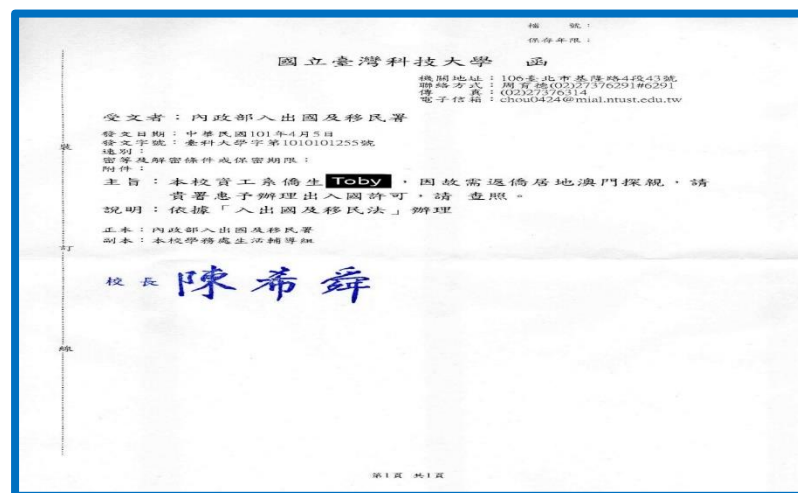 檔　號：
保存年限：
國立臺灣科技大學　函
機關地址：106臺北市基隆路4段43號
聯絡方式：周育德(02)27376291#6291
傳　　真：(02)27376314
電子信箱：chou0424@mial.ntust.edu.tw
受文者：內政部入出國及移民署
發文日期：中華民國101年4月5日
發文字號：臺科大學字第1010101255號
速別：
密等及解密條件或保密期限：
附件：
主旨：本校資工系僑生Toby，因故需返僑居地澳門探親，請
貴署惠予辦理出入國許可，請 查照。
說明：依據「入出國及移民法」辦理
正本：內政部入出國及移民署
副本：本校學務處生活輔導組
校長 陳希舜
裝
訂
線
第1頁 共1頁